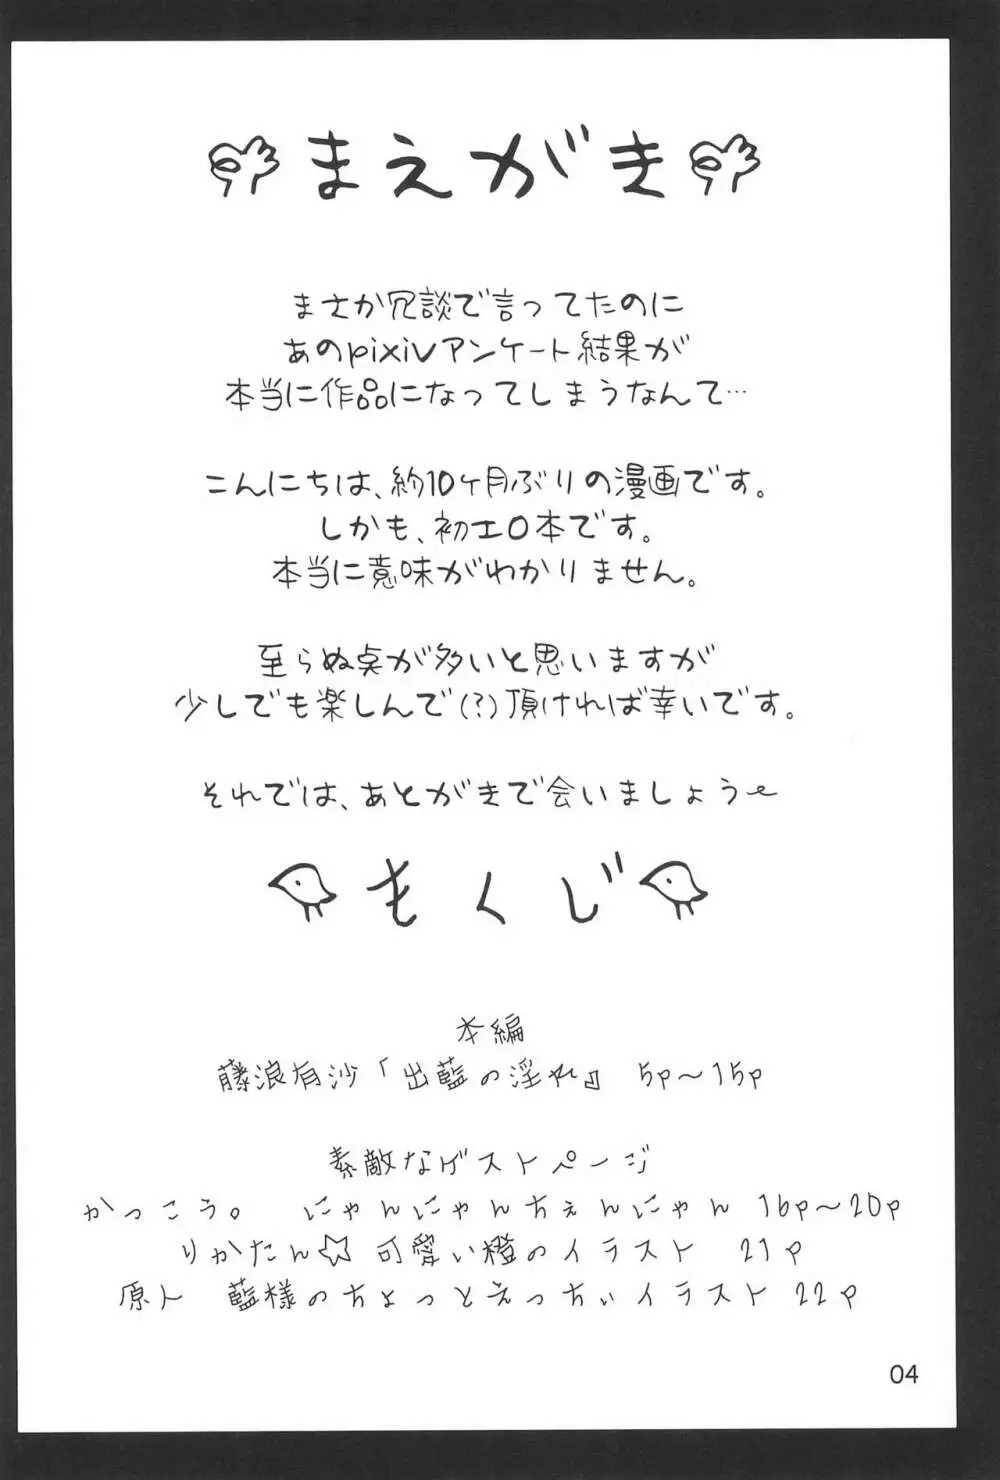 まえがき
まさか冗談で言ってたのに
あのpixivアンケート結果が
本当に作品になってしまうなんて…
こんにちは、約10ヶ月ぶりの漫画です。
しかも、初エロ本です。
本当に意味がわかりません。
至らぬ点が多いと思いますが
少しでも楽しんで(?)頂ければ幸いです。
それでは、あとがきで会いましょう〜
もくじ
本編
藤浪有沙「出藍の淫れ』 5p〜15p
素敵なゲストページ
かっこう。 にゃんにゃんちぇんにゃん 16p〜20p
りかたん☆ 可愛い橙のイラスト 21p
原人 藍様のちょっとえっちぃイラスト 22p
04